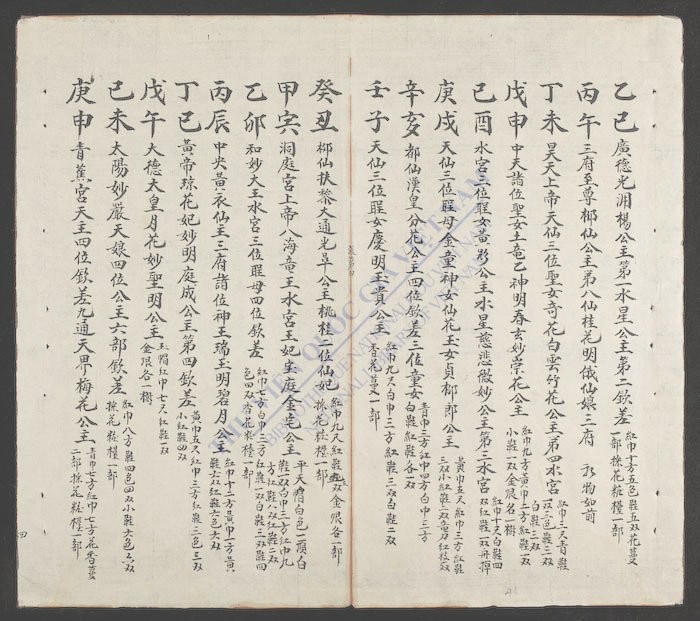 乙巳 廣德光淵楊公主第一水星公主第二欽差 紅巾十方五色鞋五双花蔓
揀花粧橙一部
丙午 三府至尊郁仙公主第八仙桂花明俄仙娘三府 礼物如前
丁未 昊天上帝天仙三位聖女奇花白雲竹花公主第四水宮 紅巾三尺青鞋
双三色鞋三双
白鞋三双
戊申 中天諸位聖女土竜乙神明春玄妙崇花公主 紅巾九方黃巾二方紅鞋一双
小鞋一双金银各一樹
己酉 水宮三位聖女黃彩公主水星慈悲微妙公主第三水宮 紅巾十尺白鞋四
双紅鞋一双
庚戌 天仙三位聖母金童神女仙花玉女貞郁郎公主 黃巾五尺紅巾三方紅鞋
三双小紅鞋二双
辛亥 都仙漢皇分花公主四位欽差三位童女 青巾三方紅巾四方白巾三方
白鞋紅鞋各一双
壬子 天仙三位聖女慶明玉貴公主 紅巾九尺白巾三方紅鞋三双白鞋二双
香花蔓一部
癸丑 郁仙扶黎大通光旱公主桃桂二位仙妃 紅巾九尺紅鞋五双金银各一部
揀花粧橙一部
甲寅 洞庭宮上帝八海竜王水宮王妃宝庭金宅公主 平天帽白色一頂白
鞋一双白巾三方紅巾九
方紅鞋八双紅鞋二双
乙卯 和妙大王水宮三位聖母四位欽差 紅巾七方白巾三方紅鞋一双白鞋三双鞋四
色四双香花粧橙一部
丙辰 中央黃衣仙主三府諸位神王瑞玉明碧月公主 紅巾十二方黃巾一方黃
鞋六双紅鞋六色六双
丁巳 黃帝琼花妃妙明庭成公主第四欽差 黃巾五尺紅巾三方紅鞋三色三双
小紅鞋四双
戊午 大德太皇月花妙聖明公主 玉帽紅巾七尺紅鞋一双
金银各一樹
己未 太陽妙嚴天娘四位公主六部欽差 紅巾八方鞋四色四双小鞋六色六双
揀花粧橙一部
庚申 青蕉宮天主四位欽差九通天界梅花公主 青巾七方紅巾七方花香蔓
二部揀花粧橙一部
四